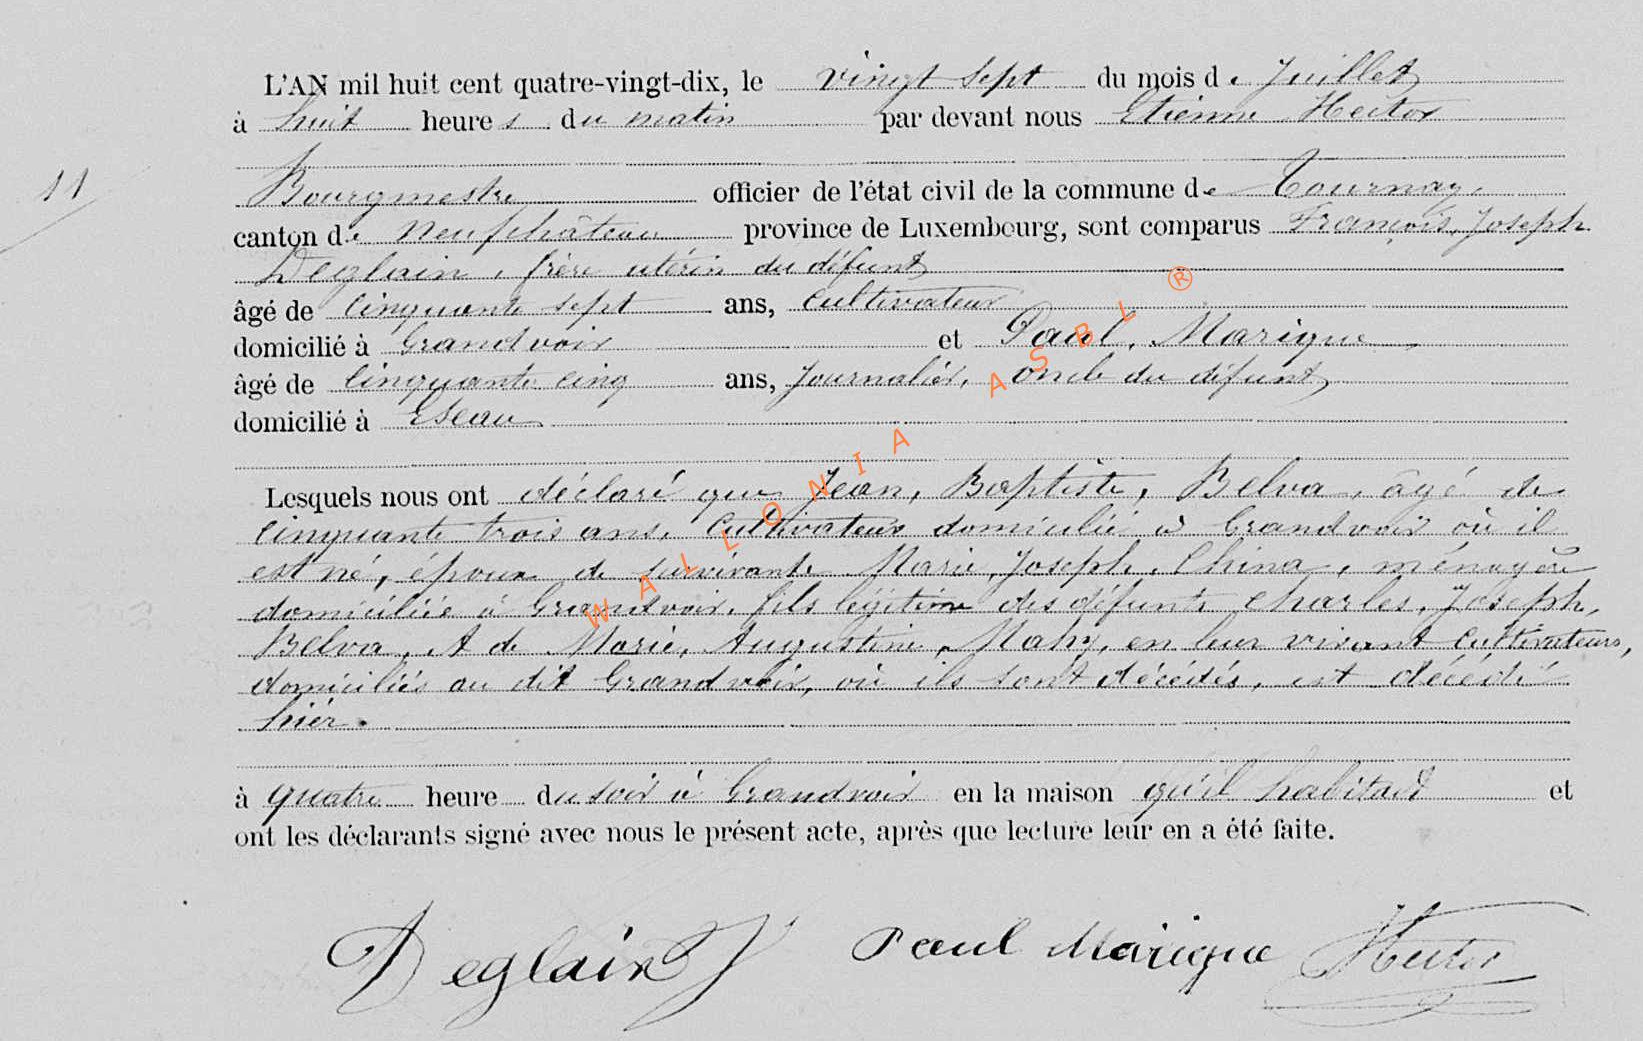 L'AN mil huit cent quatre-vingt-dix, le vingt sept du mois de Juillet
à huit heures du matin par devant nous Etienne Hector
11
Bourgmestre officier de l'état civil de la commune de Tournay,
canton de Neufchâteau province de Luxembourg, sont comparus François, Joseph
Deglain, frère utérin du défunt
âgé de cinquante sept ans, cultivateur
domicilié à Grandvoir et Paul, Marique
âgé de cinquante cinq ans, Journalier, oncle du défunt,
domicilié à
Lesquels nous ont déclaré que Jean, Baptiste, Belva, âgé de
cinquante trois ans, cultivateur domicilié à Grandvoir où il
est né, époux de survivante Marie, Joseph, China, ménagère
domiciliée à Grandvoir, fils légitime des défunts Charles, Joseph,
Belva, et de Marie, Augustine, Mahy, en leur vivant cultivateurs,
domiciliés au dit Grandvoir, où ils sont décédés, est décédé
hier.
à quatre heure du soir à Grandvoir en la maison qu'il habitait et
ont les déclarants signé avec nous le présent acte, après que lecture leur en a été faite.
Deglain J Paul Marique Hector
WALLONIA ASBL ®